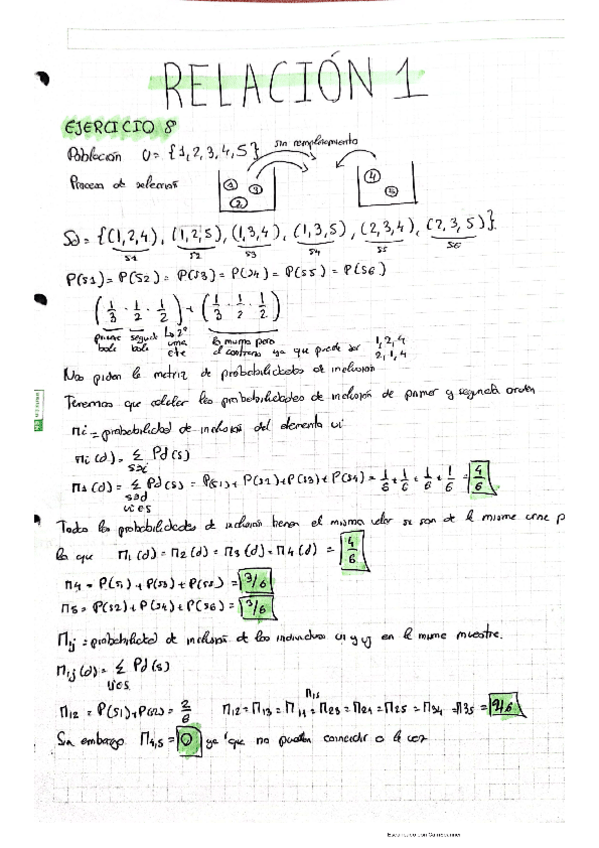 RELACIÓN 1
EJERCICIO 8
Población U = {1,2,3,4,5} sin reemplazamiento
Proceso de selección 1 2 3 4 5
Sd = {(1,2,4), (1,2,5), (1,3,4), (1,3,5), (2,3,4), (2,3,5)}
S1 S2 S3 S4 S5 S6
P(S1) = P(S2) = P(S3) = P(S4) = P(S5) = P(S6)
(1/3 · 1/2 · 1/2) + (1/3 · 1/2 · 1/2)
primera bola segunda bola 2ª urna lo mismo pero al contrario ya que puede ser 1,2,4
2,1,4
Nos piden la matriz de probabilidades de inclusión
Tenemos que calcular las probabilidades de inclusión de primer y segundo orden
πi = probabilidad de inclusión del elemento ui
πi(d) = Σ Pd(s)
π1(d) = Σ Pd(s) = P(S1) + P(S2) + P(S3) + P(S4) = 1/6 + 1/6 + 1/6 + 1/6 = 4/6
Todas las probabilidades de inclusión tienen el mismo valor si son de la misma urna p
lo que Π1(d) = Π2(d) = Π3(d) = Π4(d) = 4/6
Π4 = P(S1) + P(S3) + P(S5) = 3/6
Π5 = P(S2) + P(S4) + P(S6) = 3/6
Πij = probabilidad de inclusión de los individuos ui y uj en la misma muestra.
Πij(d) = Σ Pd(s)
Π12 = P(S1) + P(S2) = 2/6 Π12 = Π13 = Π14 = Π15 = Π23 = Π24 = Π25 = Π34 = Π35 = 2/6
Sin embargo Π4,5 = 0 ya que no pueden coincidir a la vez
Escaneado con CamScanner